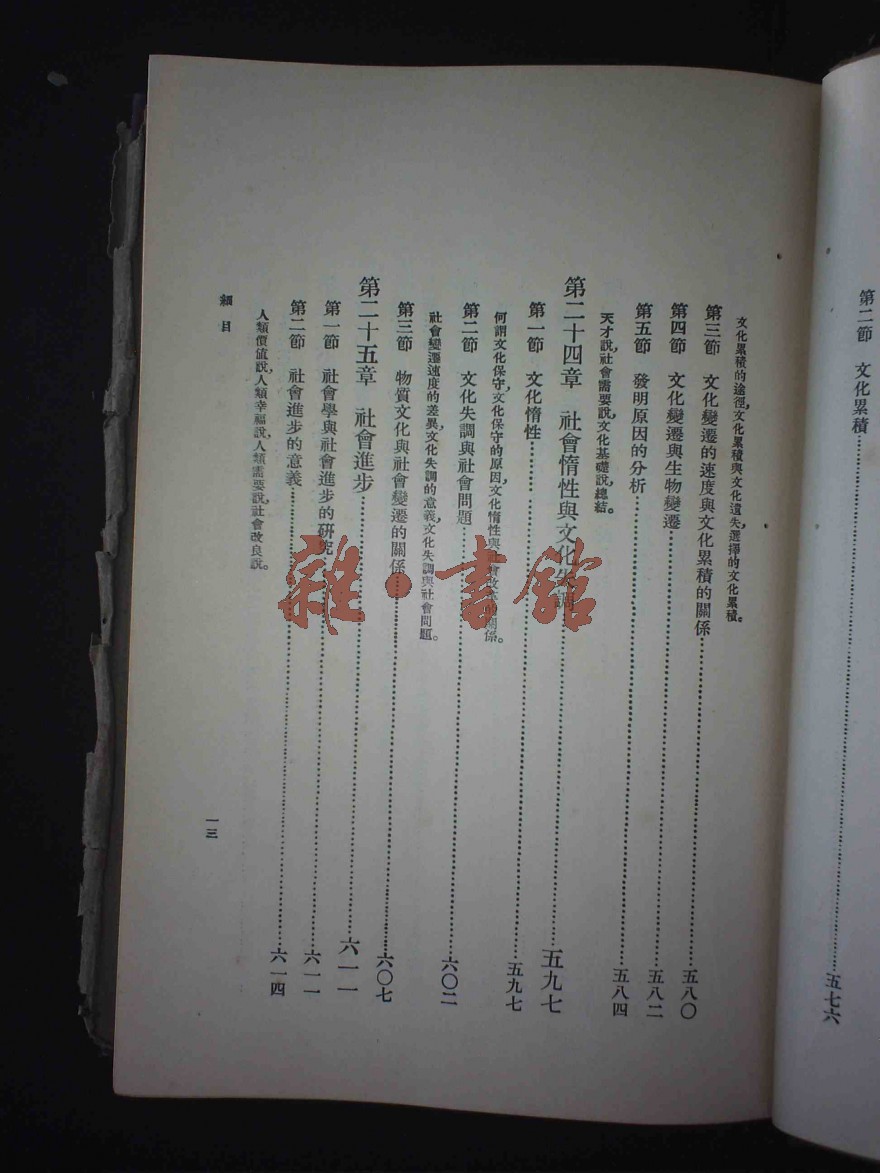 第二節　文化累積…………五七六
文化累積的途徑,文化累積與文化遺失,選擇的文化累積。
第三節　文化變遷的速度與文化累積的關係…………五八〇
第四節　文化變遷與生物變遷…………五八二
第五節　發明原因的分析…………五八四
天才說,社會需要說,文化基礎說,總結。
第二十四章　社會惰性與文化失調…………五九七
第一節　文化惰性…………五九七
何謂文化保守,文化保守的原因,文化惰性與社會改革的關係。
第二節　文化失調與社會問題…………六〇二
社會變遷速度的差異,文化失調的意義,文化失調與社會問題。
第三節　物質文化與社會變遷的關係…………六〇七
第二十五章　社會進步…………六一一
第一節　社會學與社會進步的研究…………六一一
第二節　社會進步的意義…………六一四
人類價值說,人類幸福說,人類需要說,社會改良說。
細目
一三
雜·書館